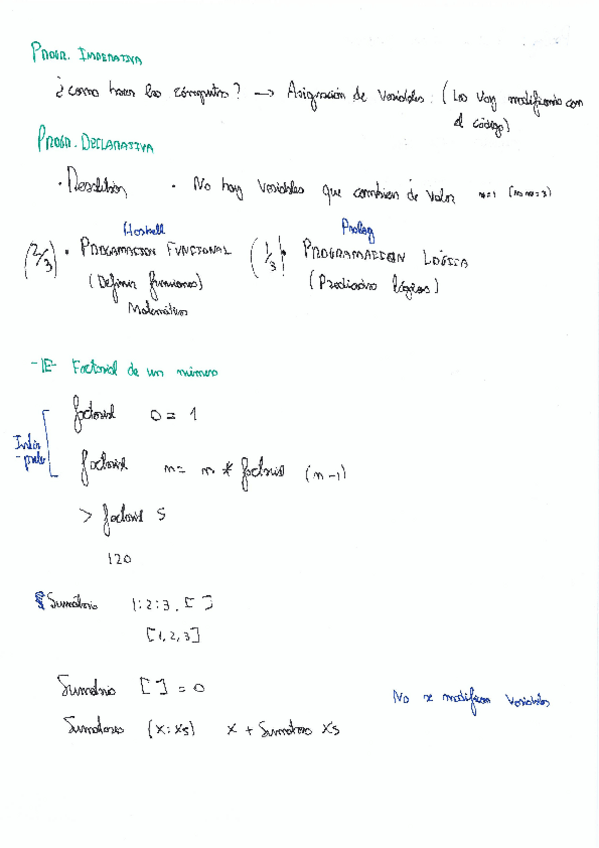 PROGR. IMPERATIVA
¿como hacer los cómputos? → Asignación de variables: (Las voy modificando con
el código)
PROGR. DECLARATIVA
· Resolución · No hay variables que cambien de valor n=1
Haskell Prolog
(2/3) · PROGRAMACION FUNCIONAL (1/3) · PROGRAMACION LÓGICA
(Definir funciones) (Predicados lógicos)
Matemáticas
-IE- Factorial de un número
factorial 0 = 1
Intér
-prete
factorial n = n * factorial (n-1)
> factorial 5
120
Sumatorio 1:2:3.[ ]
[1,2,3]
Sumatorio [ ] = 0
No se modifican variables
Sumatorio (x:xs) x + Sumatorio xs